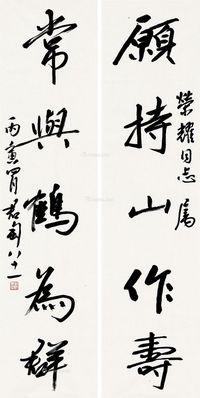 榮耀同志屬
願持山作壽
常與鶴為群
丙寅 君匋八十一